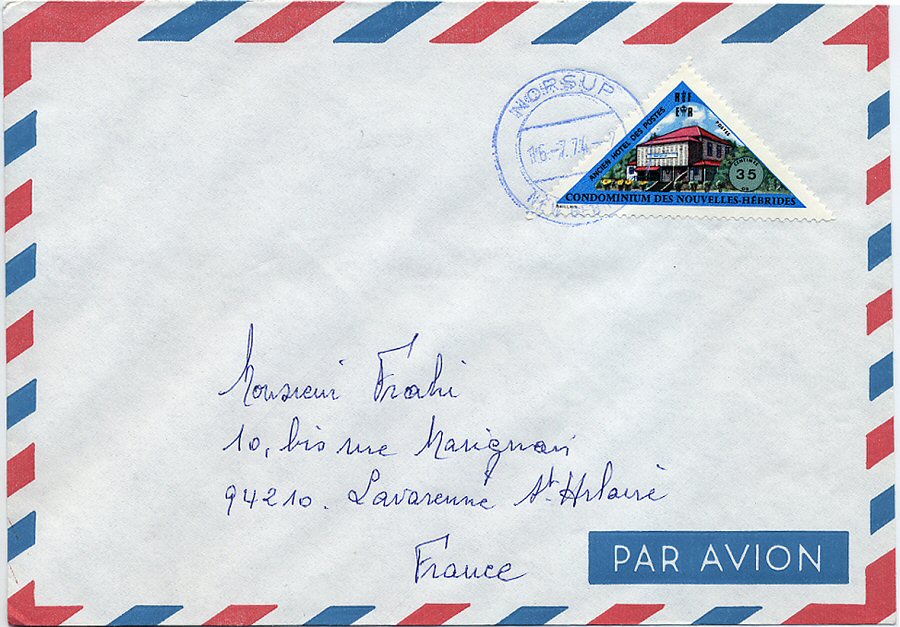 NORSUP
16.-7.74.-
ANCIEN HOTEL DES POSTES
POSTES
E R
35
CONDOMINIUM DES NOUVELLES-HÉBRIDES
Monsieur Frahi
10, bis rue Marignan
94210. Lavarenne St Hilaire
France
PAR AVION